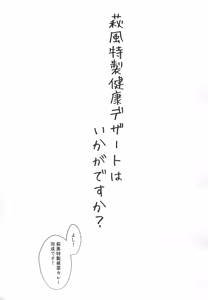 萩風特製健康デザートは
いかがですか？
よし！
萩風特製健康カレー
完成です！